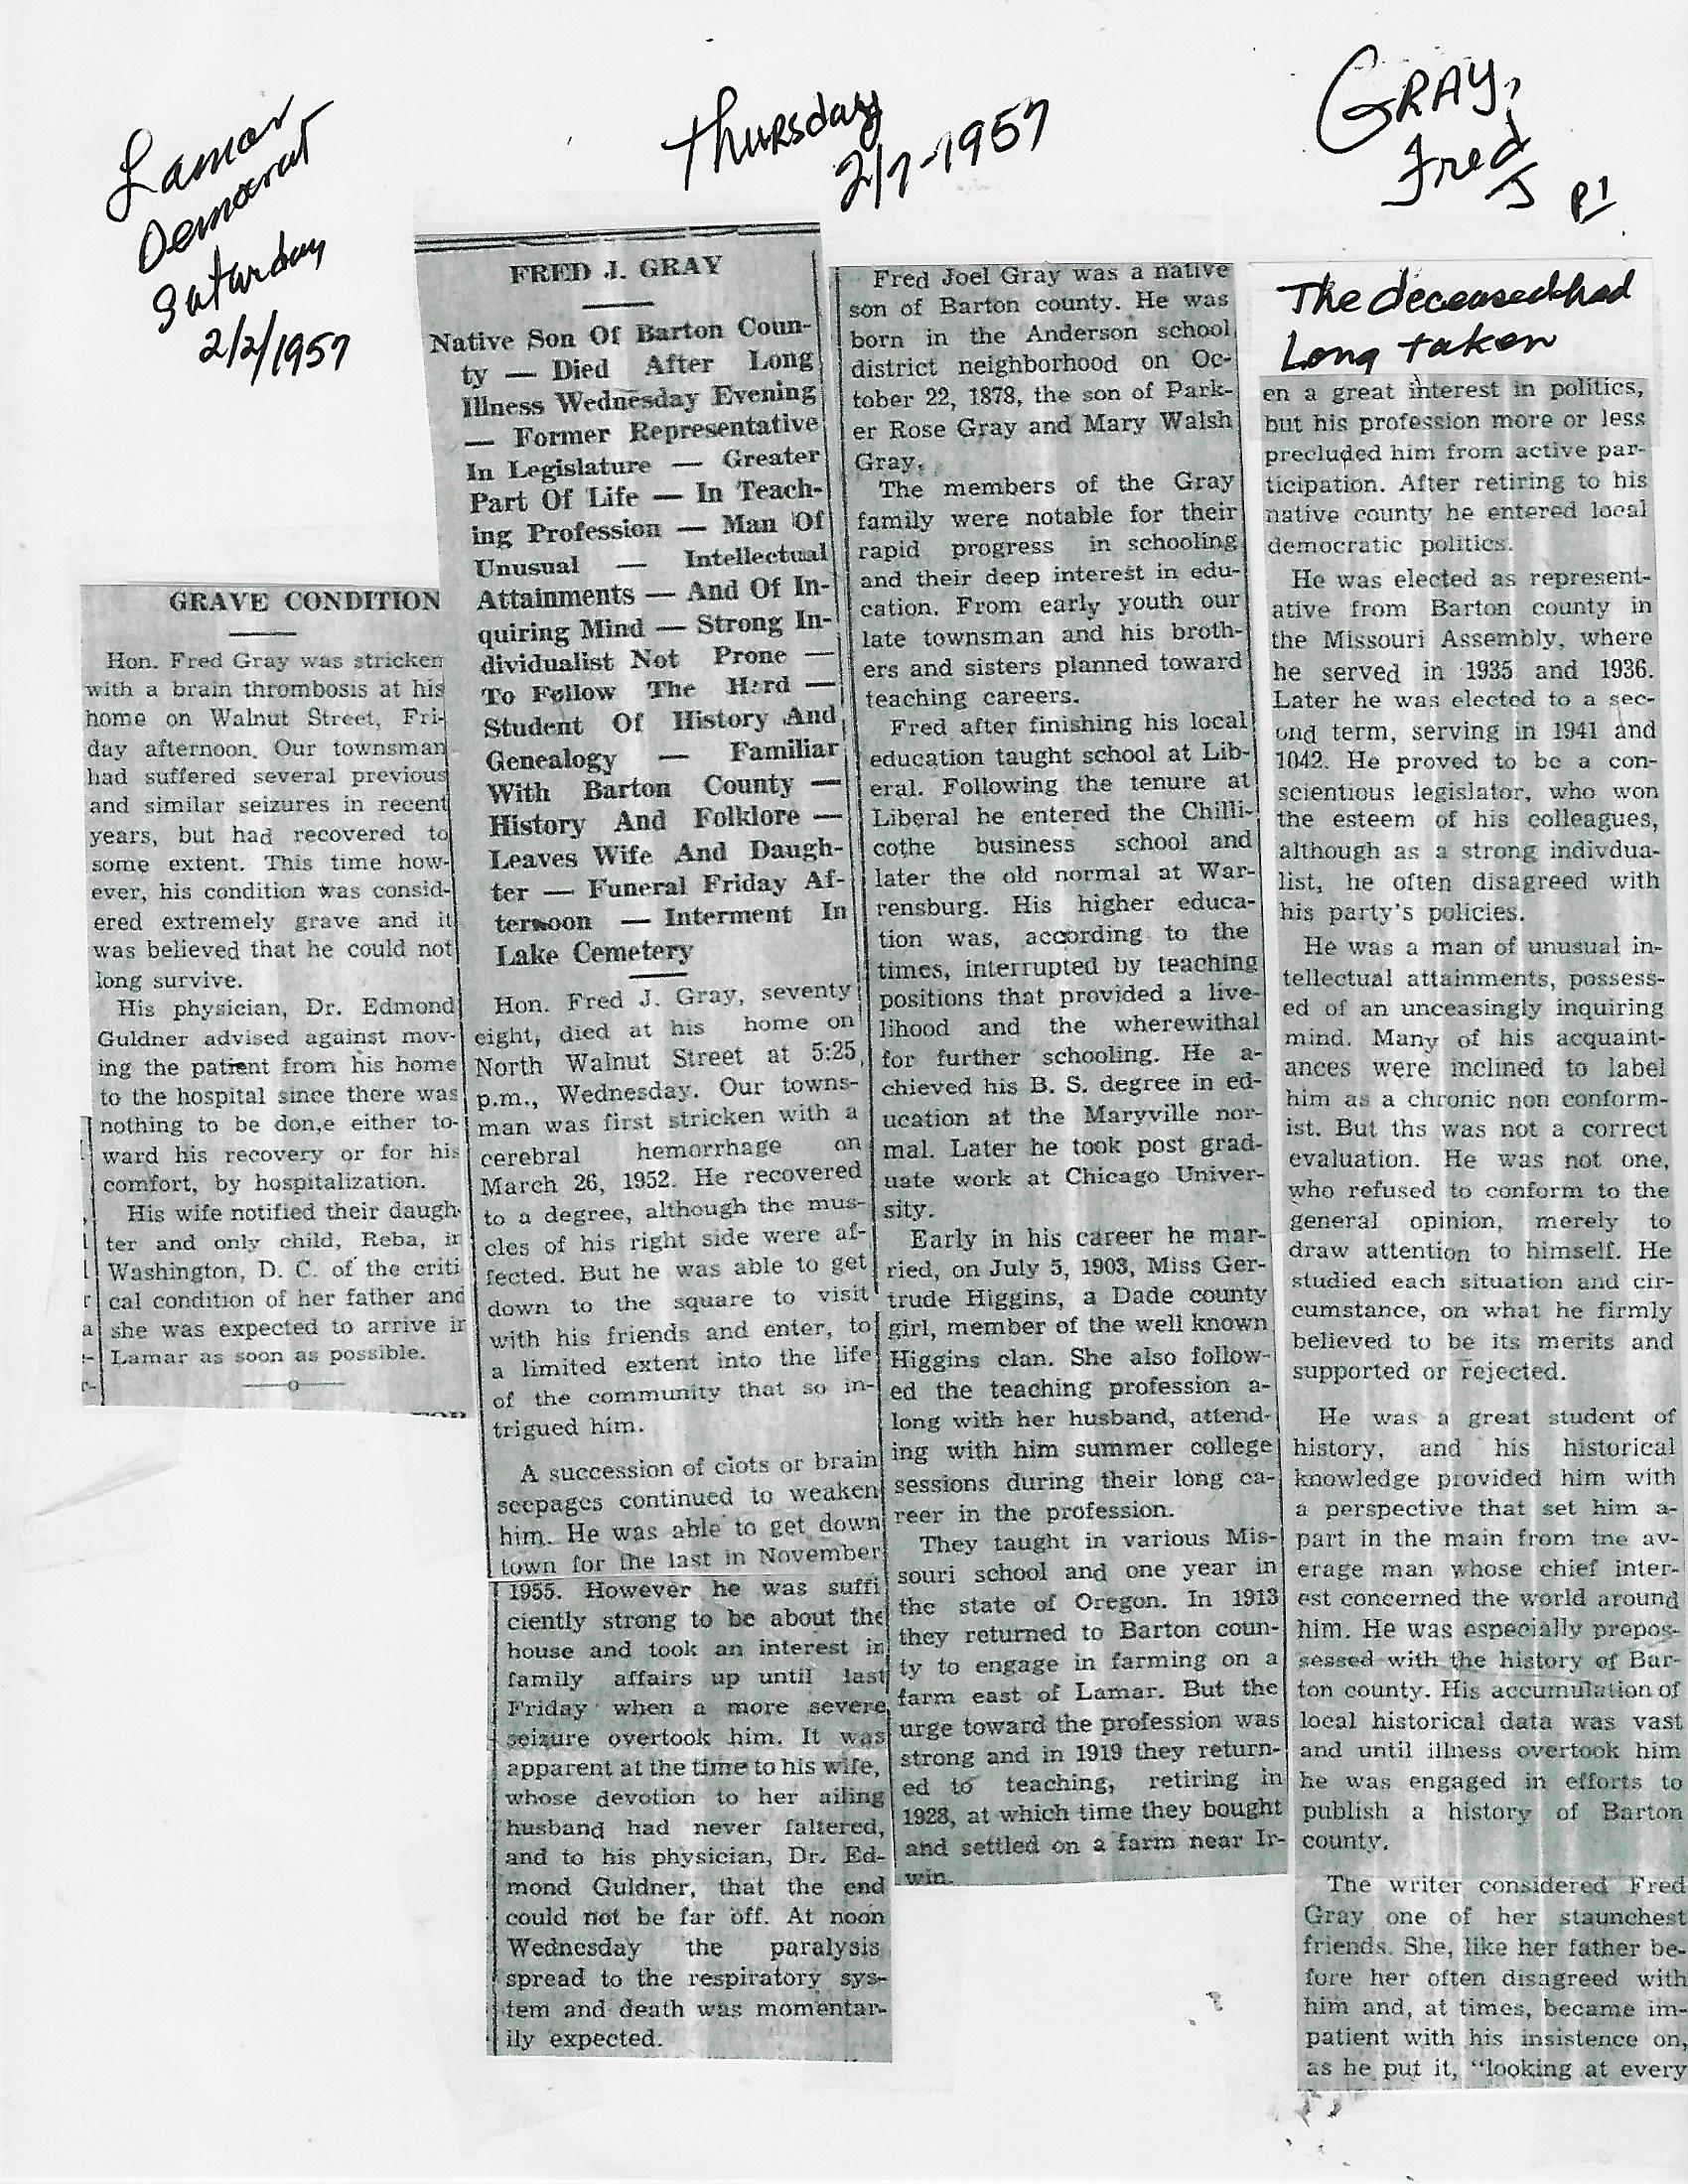 Lamar
Democrat
Saturday
2/2/1957
Thursday
2/7-1957
GRAY,
Fred
J
P1
GRAVE CONDITION
Hon. Fred Gray was stricken
with a brain thrombosis at his
home on Walnut Street, Fri-
day afternoon. Our townsman
had suffered several previous
and similar seizures in recent
years, but had recovered to
some extent. This time how-
ever, his condition was consid-
ered extremely grave and it
was believed that he could not
long survive.
His physician, Dr. Edmond
Guldner advised against mov-
ing the patient from his home
to the hospital since there was
nothing to be don,e either to-
ward his recovery or for his
comfort, by hospitalization.
His wife notified their daugh-
ter and only child, Reba, in
Washington, D. C. of the criti
cal condition of her father and
she was expected to arrive in
Lamar as soon as possible.
FRED J. GRAY
Native Son Of Barton Coun-
ty — Died After Long
Illness Wednesday Evening
— Former Representative
In Legislature — Greater
Part Of Life — In Teach-
ing Profession — Man Of
Unusual — Intellectual
Attainments — And Of In-
quiring Mind — Strong In-
dividualist Not Prone —
To Follow The Herd —
Student Of History And
Genealogy — Familiar
With Barton County —
History And Folklore —
Leaves Wife And Daugh-
ter — Funeral Friday Af-
ternoon — Interment In
Lake Cemetery
Hon. Fred J. Gray, seventy
eight, died at his home on
North Walnut Street at 5:25
p.m., Wednesday. Our towns-
man was first stricken with a
cerebral hemorrhage on
March 26, 1952. He recovered
to a degree, although the mus-
cles of his right side were af-
fected. But he was able to get
down to the square to visit
with his friends and enter, to
a limited extent into the life
of the community that so in-
trigued him.
A succession of clots or brain
seepages continued to weaken
him. He was able to get down
town for the last in November
1955. However he was suffi
ciently strong to be about the
house and took an interest in
family affairs up until last
Friday when a more severe
seizure overtook him. It was
apparent at the time to his wife,
whose devotion to her ailing
husband had never faltered,
and to his physician, Dr. Ed-
mond Guldner, that the end
could not be far off. At noon
Wednesday the paralysis
spread to the respiratory sys-
tem and death was momentar-
ily expected.
Fred Joel Gray was a native
son of Barton county. He was
born in the Anderson school
district neighborhood on Oc-
tober 22, 1878, the son of Park-
er Rose Gray and Mary Walsh
Gray.
The members of the Gray
family were notable for their
rapid progress in schooling
and their deep interest in edu-
cation. From early youth our
late townsman and his broth-
ers and sisters planned toward
teaching careers.
Fred after finishing his local
education taught school at Lib-
eral. Following the tenure at
Liberal he entered the Chilli-
cothe business school and
later the old normal at War-
rensburg. His higher educa-
tion was, according to the
times, interrupted by teaching
positions that provided a live-
lihood and the wherewithal
for further schooling. He a-
chieved his B. S. degree in ed-
ucation at the Maryville nor-
mal. Later he took post grad-
uate work at Chicago Univer-
sity.
Early in his career he mar-
ried, on July 5, 1903, Miss Ger-
trude Higgins, a Dade county
girl, member of the well known
Higgins clan. She also follow-
ed the teaching profession a-
long with her husband, attend-
ing with him summer college
sessions during their long ca-
reer in the profession.
They taught in various Mis-
souri school and one year in
the state of Oregon. In 1913
they returned to Barton coun-
ty to engage in farming on a
farm east of Lamar. But the
urge toward the profession was
strong and in 1919 they return-
ed to teaching, retiring in
1928, at which time they bought
and settled on a farm near Ir-
win.
The deceased had
Long taken
en a great interest in politics,
but his profession more or less
precluded him from active par-
ticipation. After retiring to his
native county he entered local
democratic politics.
He was elected as represent-
ative from Barton county in
the Missouri Assembly, where
he served in 1935 and 1936.
Later he was elected to a sec-
ond term, serving in 1941 and
1042. He proved to be a con-
scientious legislator, who won
the esteem of his colleagues,
although as a strong indivdua-
list, he often disagreed with
his party's policies.
He was a man of unusual in-
tellectual attainments, possess-
ed of an unceasingly inquiring
mind. Many of his acquaint-
ances were inclined to label
him as a chronic non conform-
ist. But ths was not a correct
evaluation. He was not one,
who refused to conform to the
general opinion, merely to
draw attention to himself. He
studied each situation and cir-
cumstance, on what he firmly
believed to be its merits and
supported or rejected.
He was a great student of
history, and his historical
knowledge provided him with
a perspective that set him a-
part in the main from the av-
erage man whose chief inter-
est concerned the world around
him. He was especially prepos-
sessed with the history of Bar-
ton county. His accumulation of
local historical data was vast
and until illness overtook him
he was engaged in efforts to
publish a history of Barton
county.
The writer considered Fred
Gray one of her staunchest
friends. She, like her father be-
fore her often disagreed with
him and, at times, became im-
patient with his insistence on,
as he put it, "looking at every